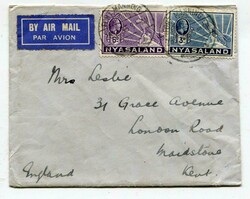 BY AIR MAIL
PAR AVION
NYASALAND
NYASALAND
Mrs Leslie
31 Grace Avenue
London Road
Maidstone
Kent.
England